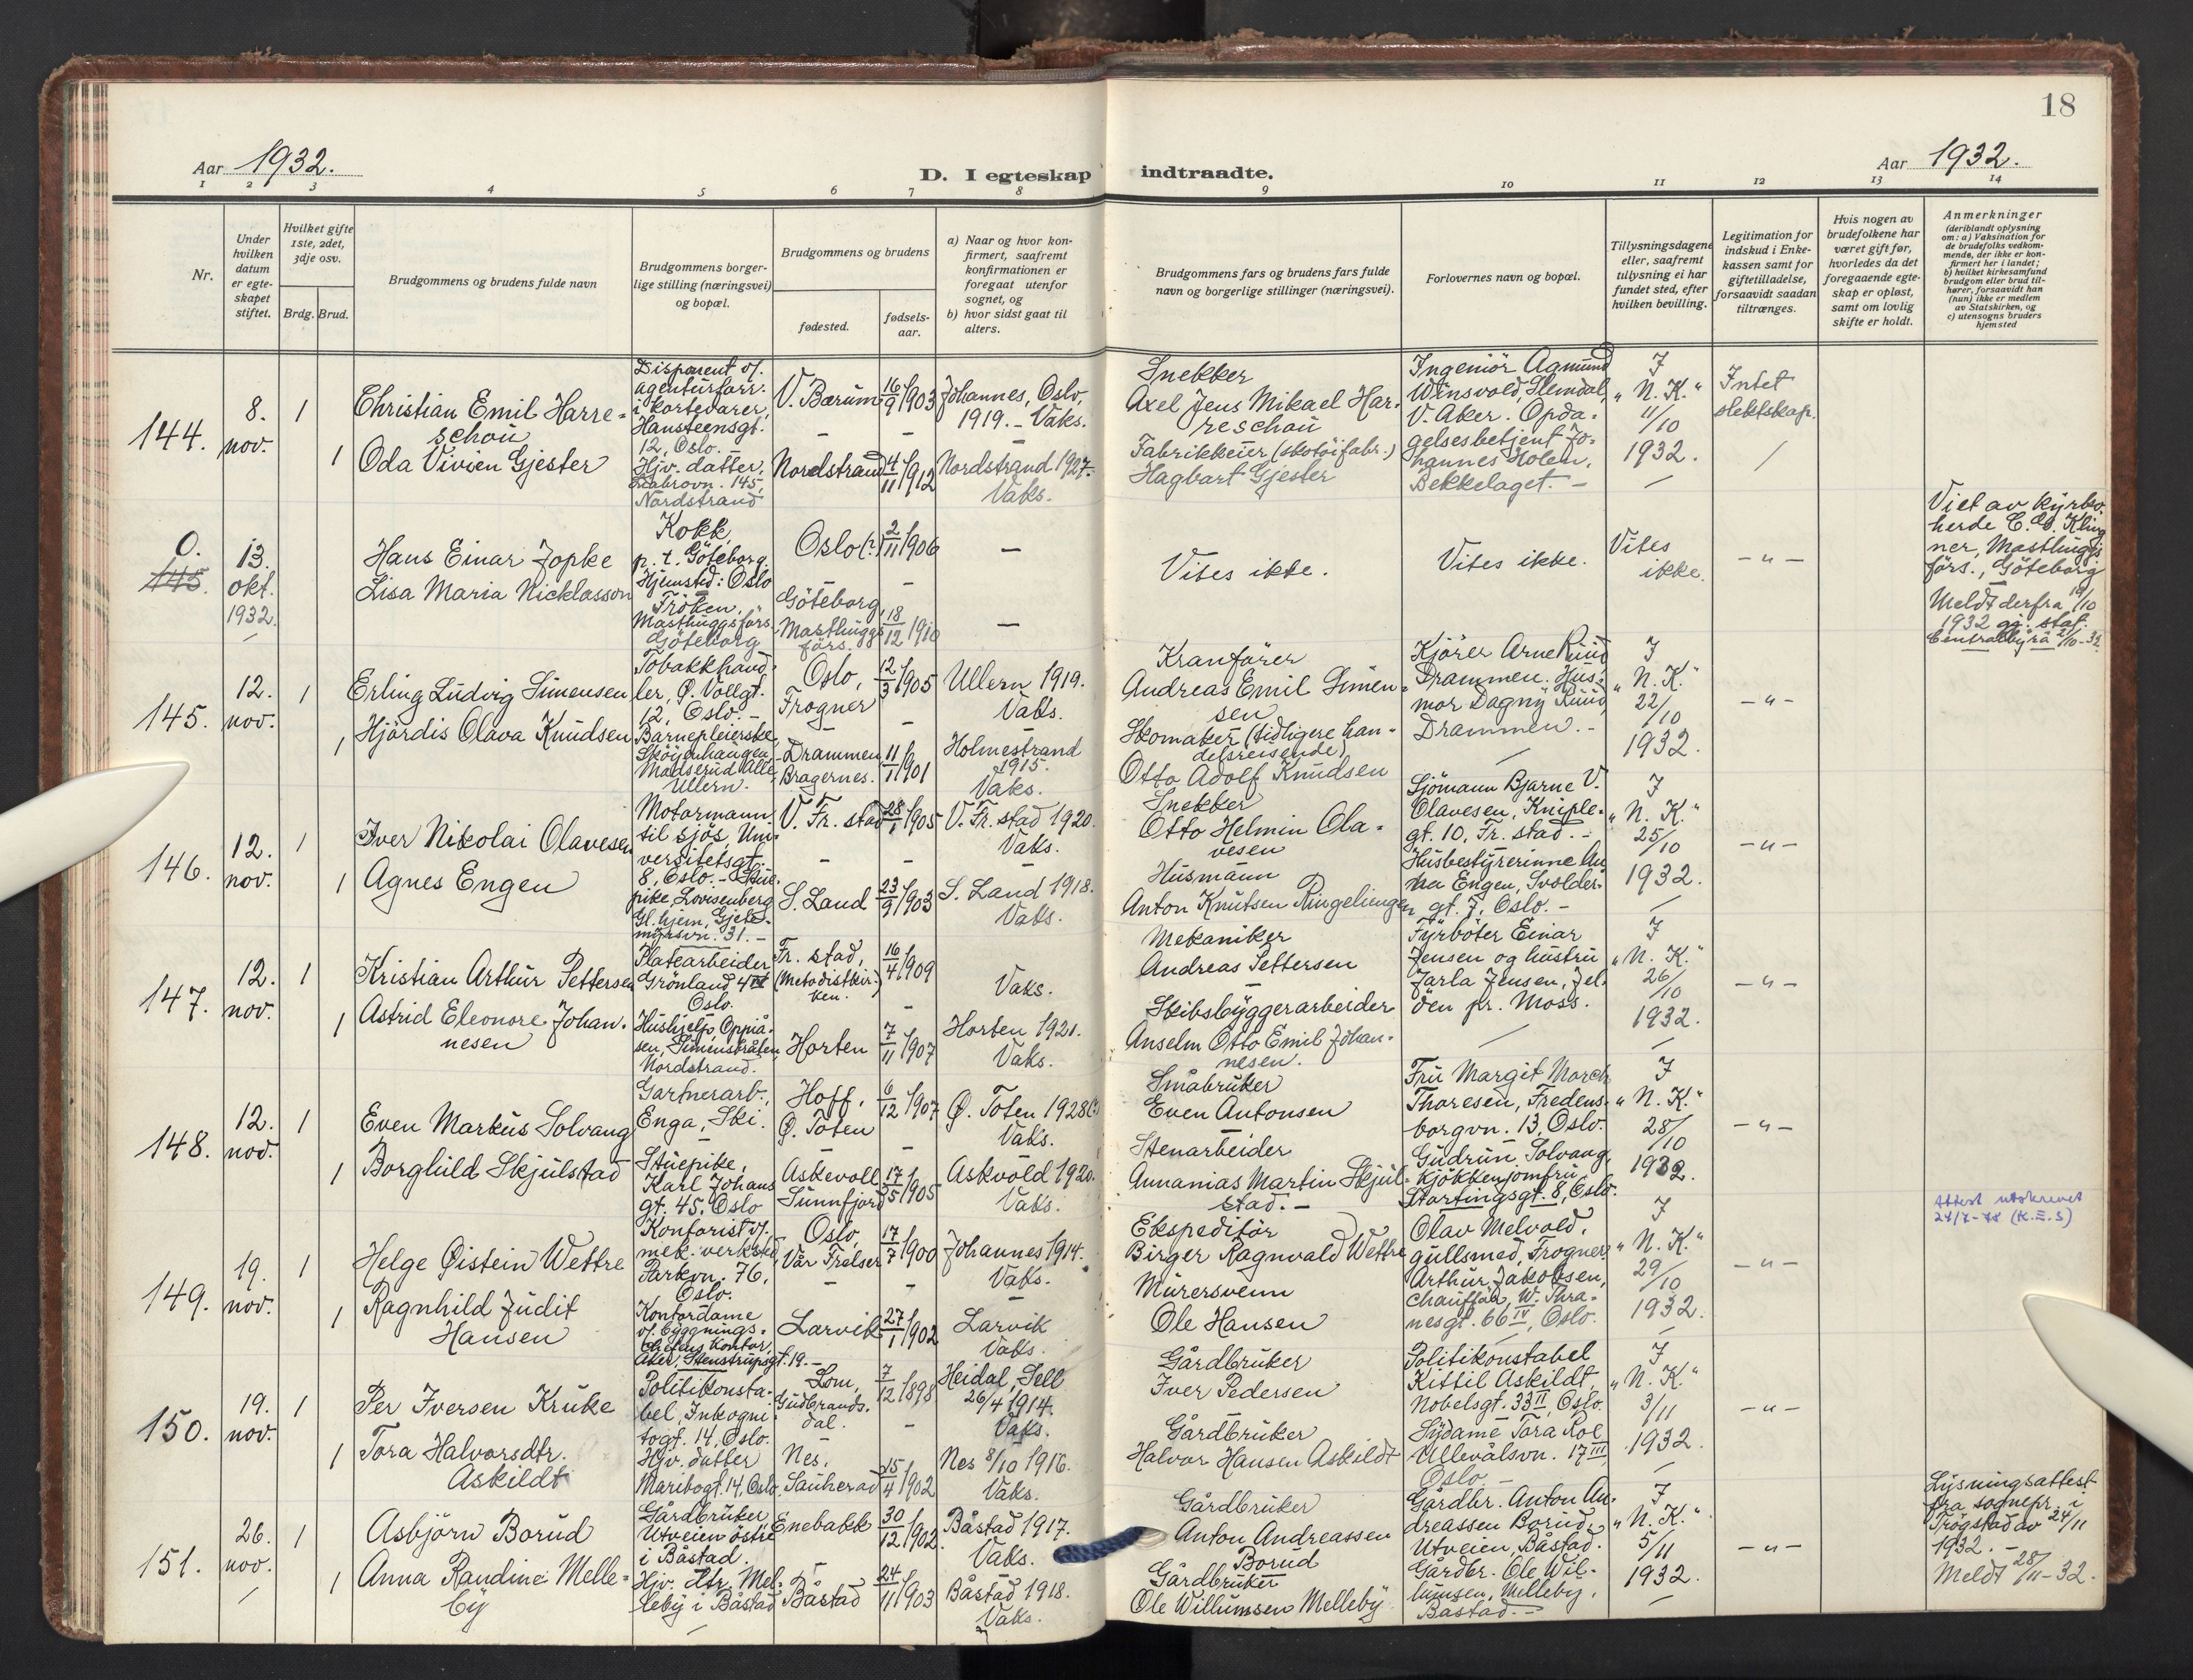 18
Aar 1932.
D. I egteskap indtraadte.
Aar 1932.
1 2 3 4 5 6 7 8 9 10 11 12 13 14
Nr.
Under hvilken datum er egteskapet stiftet.
Hvilket gifte 1ste, 2det, 3dje osv.
Brdg. Brud.
Brudgommens og brudens fulde navn
Brudgommens borgerlige stilling (næringsvei) og bopæl.
Brudgommens og brudens
fødested.
fødselsaar.
a) Naar og hvor konfirmert, saafremt konfirmationen er foregaat utenfor sognet, og
b) hvor sidst gaat til alters.
Brudgommens fars og brudens fars fulde navn og borgerlige stillinger (næringsvei).
Forlovernes navn og bopæl.
Tillysningsdagene eller, saafremt tillysning ei har fundet sted, efter hvilken bevilling.
Legitimation for indskud i Enkekassen samt for giftetilladelse, forsaavidt saadan tiltrænges.
Hvis nogen av brudefolkene har været gift før, hvorledes da det foregaaende egteskap er opløst, samt om lovlig skifte er holdt.
Anmerkninger
(deriblandt oplysning om: a) Vaksination for de brudefolks vedkommende, der ikke er konfirmert her i landet; b) hvilket kirkesamfund brudgom eller brud tilhører, forsaavidt han (hun) ikke er medlem av Statskirken, og c) utensogns bruders hjemsted
144.
8. nov.
1
Christian Emil Harreschou
Disponent v/. agenturforr. i kortevarer, Hansteensgt. 12, Oslo. -
V. Bærum
16/9 1903
Johannes, Oslo, 1919. - Vaks.
Snekker
Axel Jens Mikael Harreschou
Ingeniör Agmund Winsvold, Slemdal, V. Aker. Opdagelsesbetjent Johannes Holen, Bekkelaget. -
I „N. K." 11/10 1932.
Intet slektskap.
1
Oda Vivien Gjester
Hjv. datter, Ljabrovn. 145, Nordstrand
Nordstrand
4/11 1912
Nordstrand 1927. Vaks.
Fabrikkeier (skotöifabr.)
Hagbart Gjester
0.
145.
13. okt. 1932
Hans Einar Jopke
Kokk, p. t. Göteborg. Hjemsted: Oslo
Oslo (?)
2/11 1906
—
Vites ikke.
Vites ikke.
Vites ikke.
- " -
Viet av kyrkoherde C. O. Klingner, Masthuggs förs., Göteborg
Meldt derfra 19/10 1932 gj. stat. Centralbyrå 2/10-32
Lisa Maria Nicklasson
Fröken, Masthuggsförs. Göteborg
Göteborg, Masthuggs förs.
18/12 1910
—
145.
12. nov.
1
Erling Ludvig Simensen
Tobakkhandler, Ø. Vollgt. 12, Oslo. -
Oslo, Frogner
12/3 1905
Ullern 1919. Vaks.
Kranförer
Andreas Emil Simensen
Kjörer Arne Ruud Drammen. Husmor Dagny Ruud, Drammen. -
I „N. K." 22/10 1932.
- " -
1
Hjördis Olava Knudsen
Barnepleierske, Sköyenhaugen, Madserud Allé, Ullern.
Drammen, Bragernes.
11/1 1901
Holmestrand 1915. Vaks.
Skomaker (tidligere handelsreisende)
Otto Adolf Knudsen
146.
12. nov.
1
Iver Nikolai Olavesen
Motormann til sjös, Universitetsgt. 8, Oslo. -
V. Fr. stad
28/1 1905
V. Fr. stad 1920. Vaks.
Snekker
Otto Helmin Olavesen
Sjömann Bjarne V. Olavesen, Kniplegt. 10, Fr. stad. - Husbestyrerinne Anna Engen, Svoldergt. 7, Oslo. -
I „N. K." 25/10 1932.
- " -
1
Agnes Engen
Stuepike, Lovisenberg Gl. hjem, Gjetemyrsvn. 31. -
S. Land
23/9 1903
S. Land 1918. Vaks.
Husmann
Anton Knutsen Ringeliengen
147.
12. nov.
1
Kristian Arthur Pettersen
Platearbeider Grönland 4 IV Oslo.
Fr. stad, (Metodistkirken.)
16/4 1909
Vaks.
Mekaniker
Andreas Pettersen
Fyrböter Einar Jensen og hustru Jarla Jensen, Jelöen pr. Moss.
I „N. K." 26/10 1932.
- " -
1
Astrid Eleonore Johannesen
Hushjelp, Oppiåsen, Simenstråten, Nordstrand.
Horten
7/11 1907
Horten 1921. Vaks.
Skibsbyggerarbeider
Anselm Otto Emil Johannesen.
148.
12. nov.
1
Even Markus Solvang
Gartnerarb., Enga, Ski.
Hoff, Ø. Toten
6/12 1907
Ø. Toten 1928 (?) Vaks.
Småbruker
Even Antonsen
Fru Margit Morch Thoresen, Fredensborgvn. 13, Oslo. Gudrun Solvang, kjökkenjomfru, Stortingsgt. 8, Oslo.
I „N. K." 28/10 1932.
- " -
1
Borghild Skjulstad
Stuepike, Karl Johans gt. 45. Oslo
Askevoll Sunnfjord
17/5 1905
Askvold 1920. Vaks.
Stenarbeider
Annanias Martin Skjulstad. -
149.
19. nov.
1
Helge Øistein Wettre
Kontorist v/. mek. verksted, Parkvn. 76, Oslo.
Oslo, Vår Frelser
17/7 1900
Johannes 1914. Vaks.
Ekspeditör
Birger Ragnvald Wettre
Olav Melvold, gullsmed, Frogner. Arthur Jakobsen, chauffør, W. Thranesgt. 66 IV, Oslo.
I „N. K." 29/10 1932.
- " -
Attest utskrevet 24/7-78 (K.E.S)
1
Ragnhild Judit Hansen
Kontordame v/. bygningschefens kontor, Aker, Stenstrupsgt. 19. -
Larvik
27/1 1902
Larvik Vaks.
Murersvenn
Ole Hansen
150.
19. nov.
1
Per Iversen Kruke
Politikonstabel, Inkognitogt. 14, Oslo.
Lom, Gudbrandsdal.
7/12 1898
Heidal, Sell 26/4 1914. Vaks.
Gårdbruker
Iver Pedersen
Politikonstabel Kittil Askildt, Nobelsgt. 33 II, Oslo. Sydame Tora Roe Ullevålsvn. 17 III, Oslo. -
I „N. K." 3/11 1932.
- " -
1
Tora Halvorsdtr. Askildt
Hjv. datter Maribogt. 14, Oslo.
Nes, Sauherad
25/4 1902
Nes 8/10 1916. Vaks.
Gårdbruker
Halvor Hansen Askildt
151.
26. nov.
1
Asbjörn Borud
Gårdbruker Utveien östre i Båstad.
Enebakk
30/12 1902.
Båstad 1917. Vaks.
Gårdbruker
Anton Andreassen Borud
Gårdbr. Anton Andreassen Borud, Utveien, Båstad. Gårdbr. Ole Willumsen, Melleby, Båstad. -
I „N. K." 5/11 1932.
- " -
Lysningsattest fra sognepr. i Trögstad av 24/11 1932. - Meldt 28/11-32.
1
Anna Randine Melleby
Hjv. dtr. Melleby i Båstad
Båstad
24/11 1903
Båstad 1918. Vaks.
Gårdbruker
Ole Willumsen Melleby